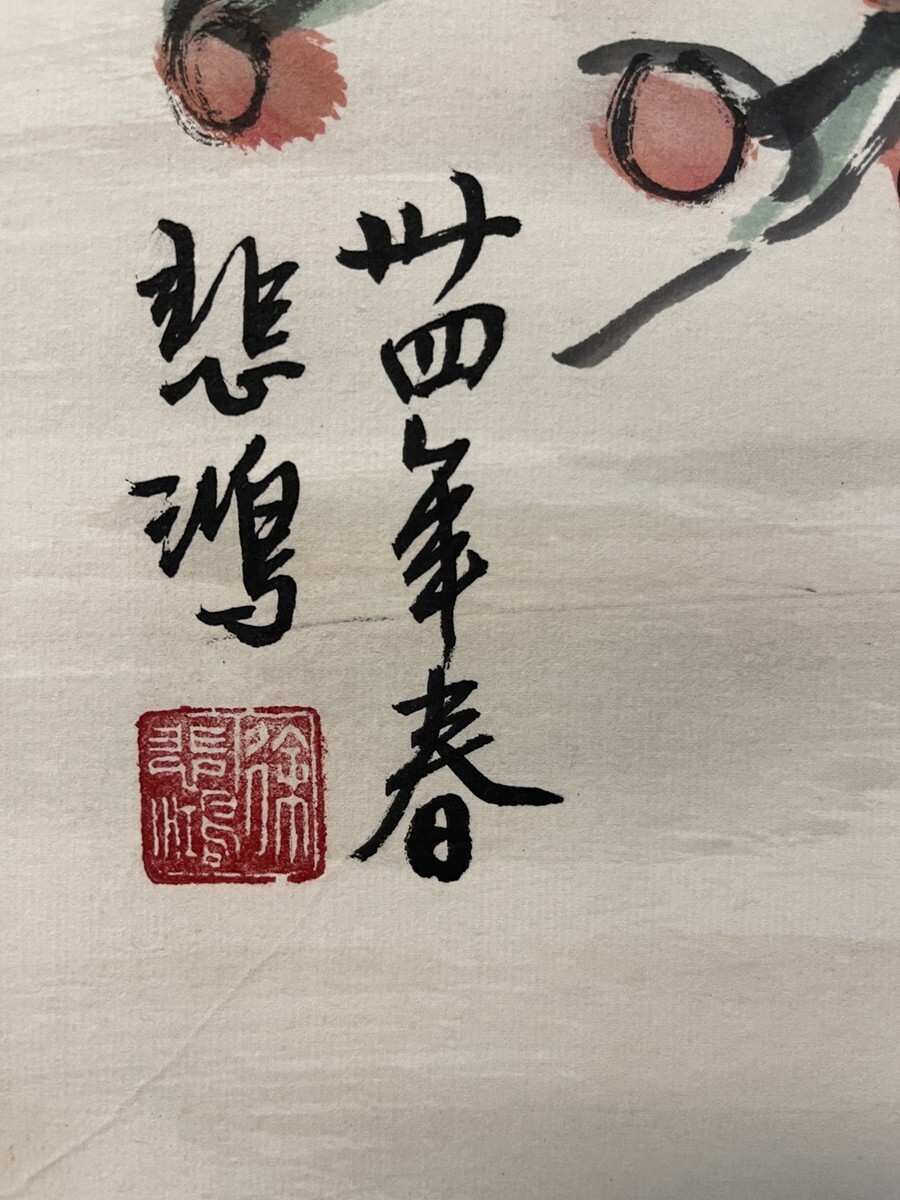 卅四年春
悲鴻
徐悲鴻